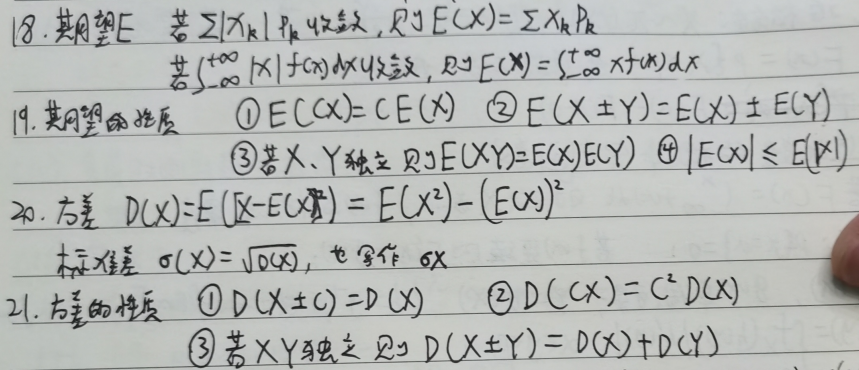 18. 期望E 若 Σ|xₖ| Pₖ 收敛, 则 E(X)=Σ XₖPₖ
若∫₋∞⁺∞ |x| f(x)dx收敛, 则 E(X)=∫₋∞⁺∞ xf(x)dx
19. 期望的性质 ① E(CX)=CE(X) ② E(X±Y)=E(X)±E(Y)
③若X、Y独立 则E(XY)=E(X)E(Y) ④ |E(X)|≤E(|X|)
20. 方差 D(X)=E([X-E(X)]²) = E(X²)-(E(X))²
标准差 σ(X)=√D(X), 也写作 σX
21. 方差的性质 ① D(X±C)=D(X) ② D(CX)=C²D(X)
③ 若XY独立 则 D(X±Y)=D(X)+D(Y)